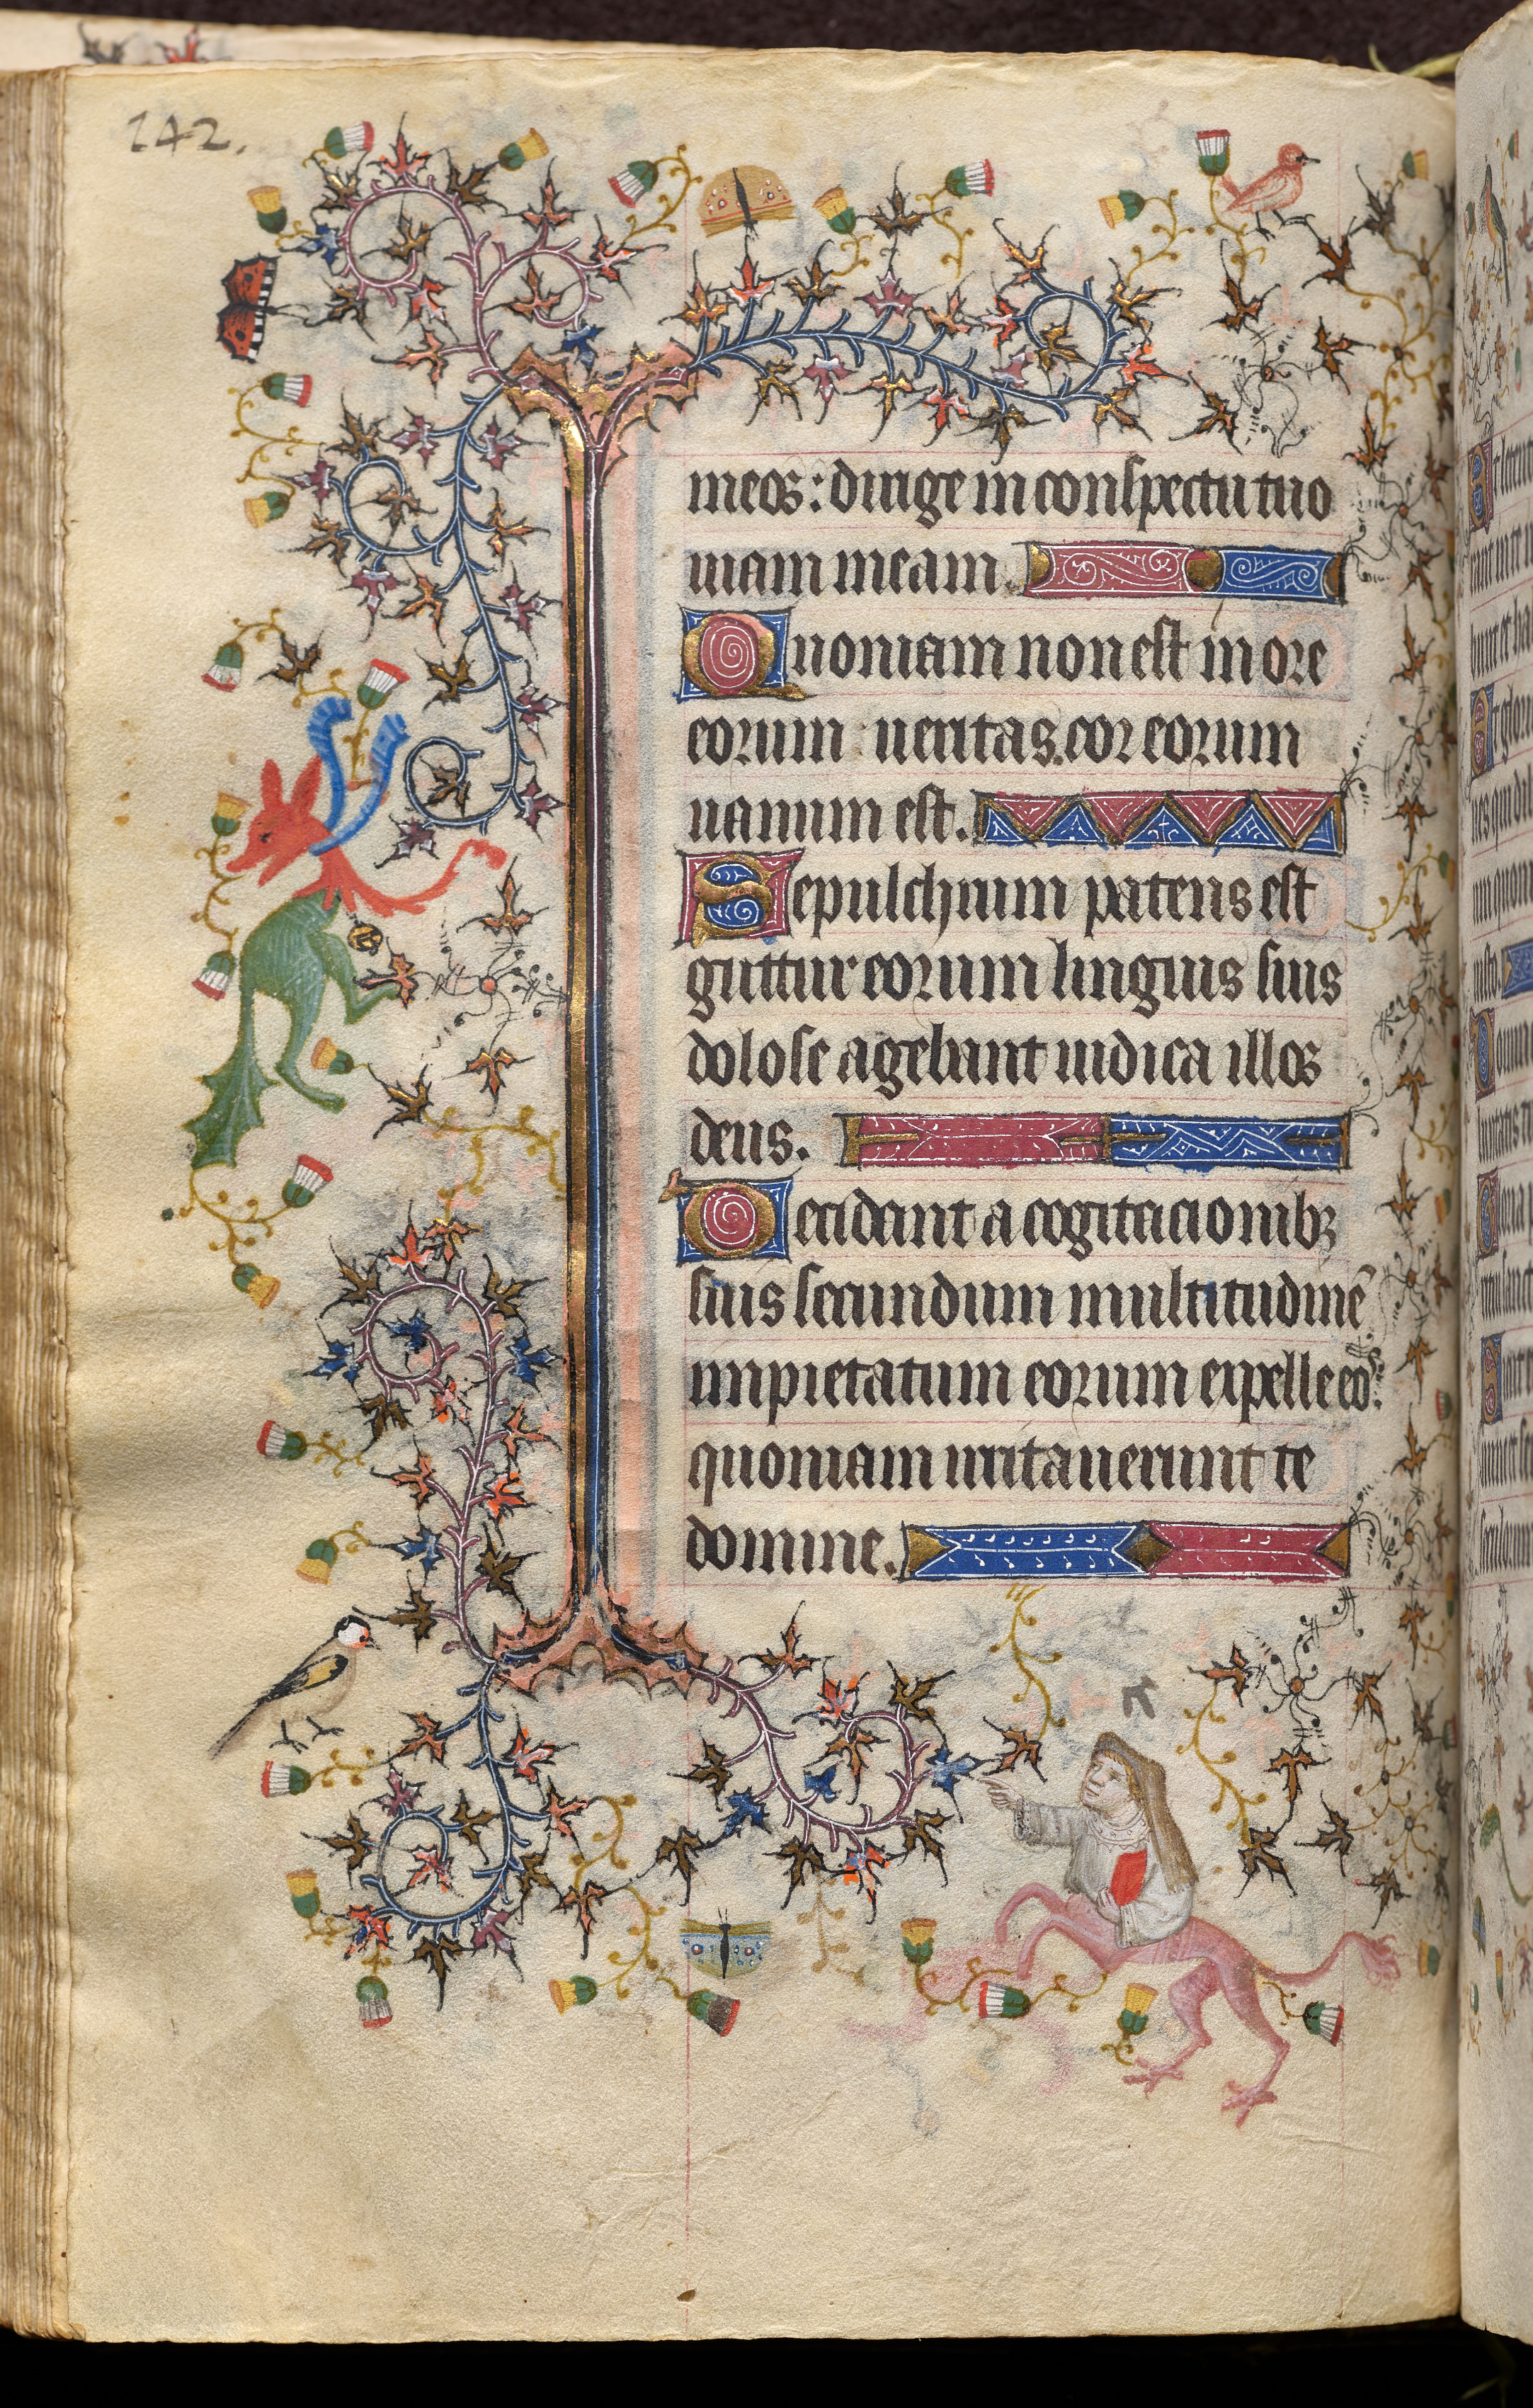 242.
meos: dirige in conspectu tuo
uiam meam.
Quoniam non est in ore
eorum ueritas. cor eorum
uanum est.
Sepulchrum patens est
guttur eorum linguis suis
dolose agebant iudica illos
deus.
Decidant a cogitacionibꝫ
suis secundum multitudinē
impietatum eorum expelle eos.
quoniam irritauerunt te
domine.